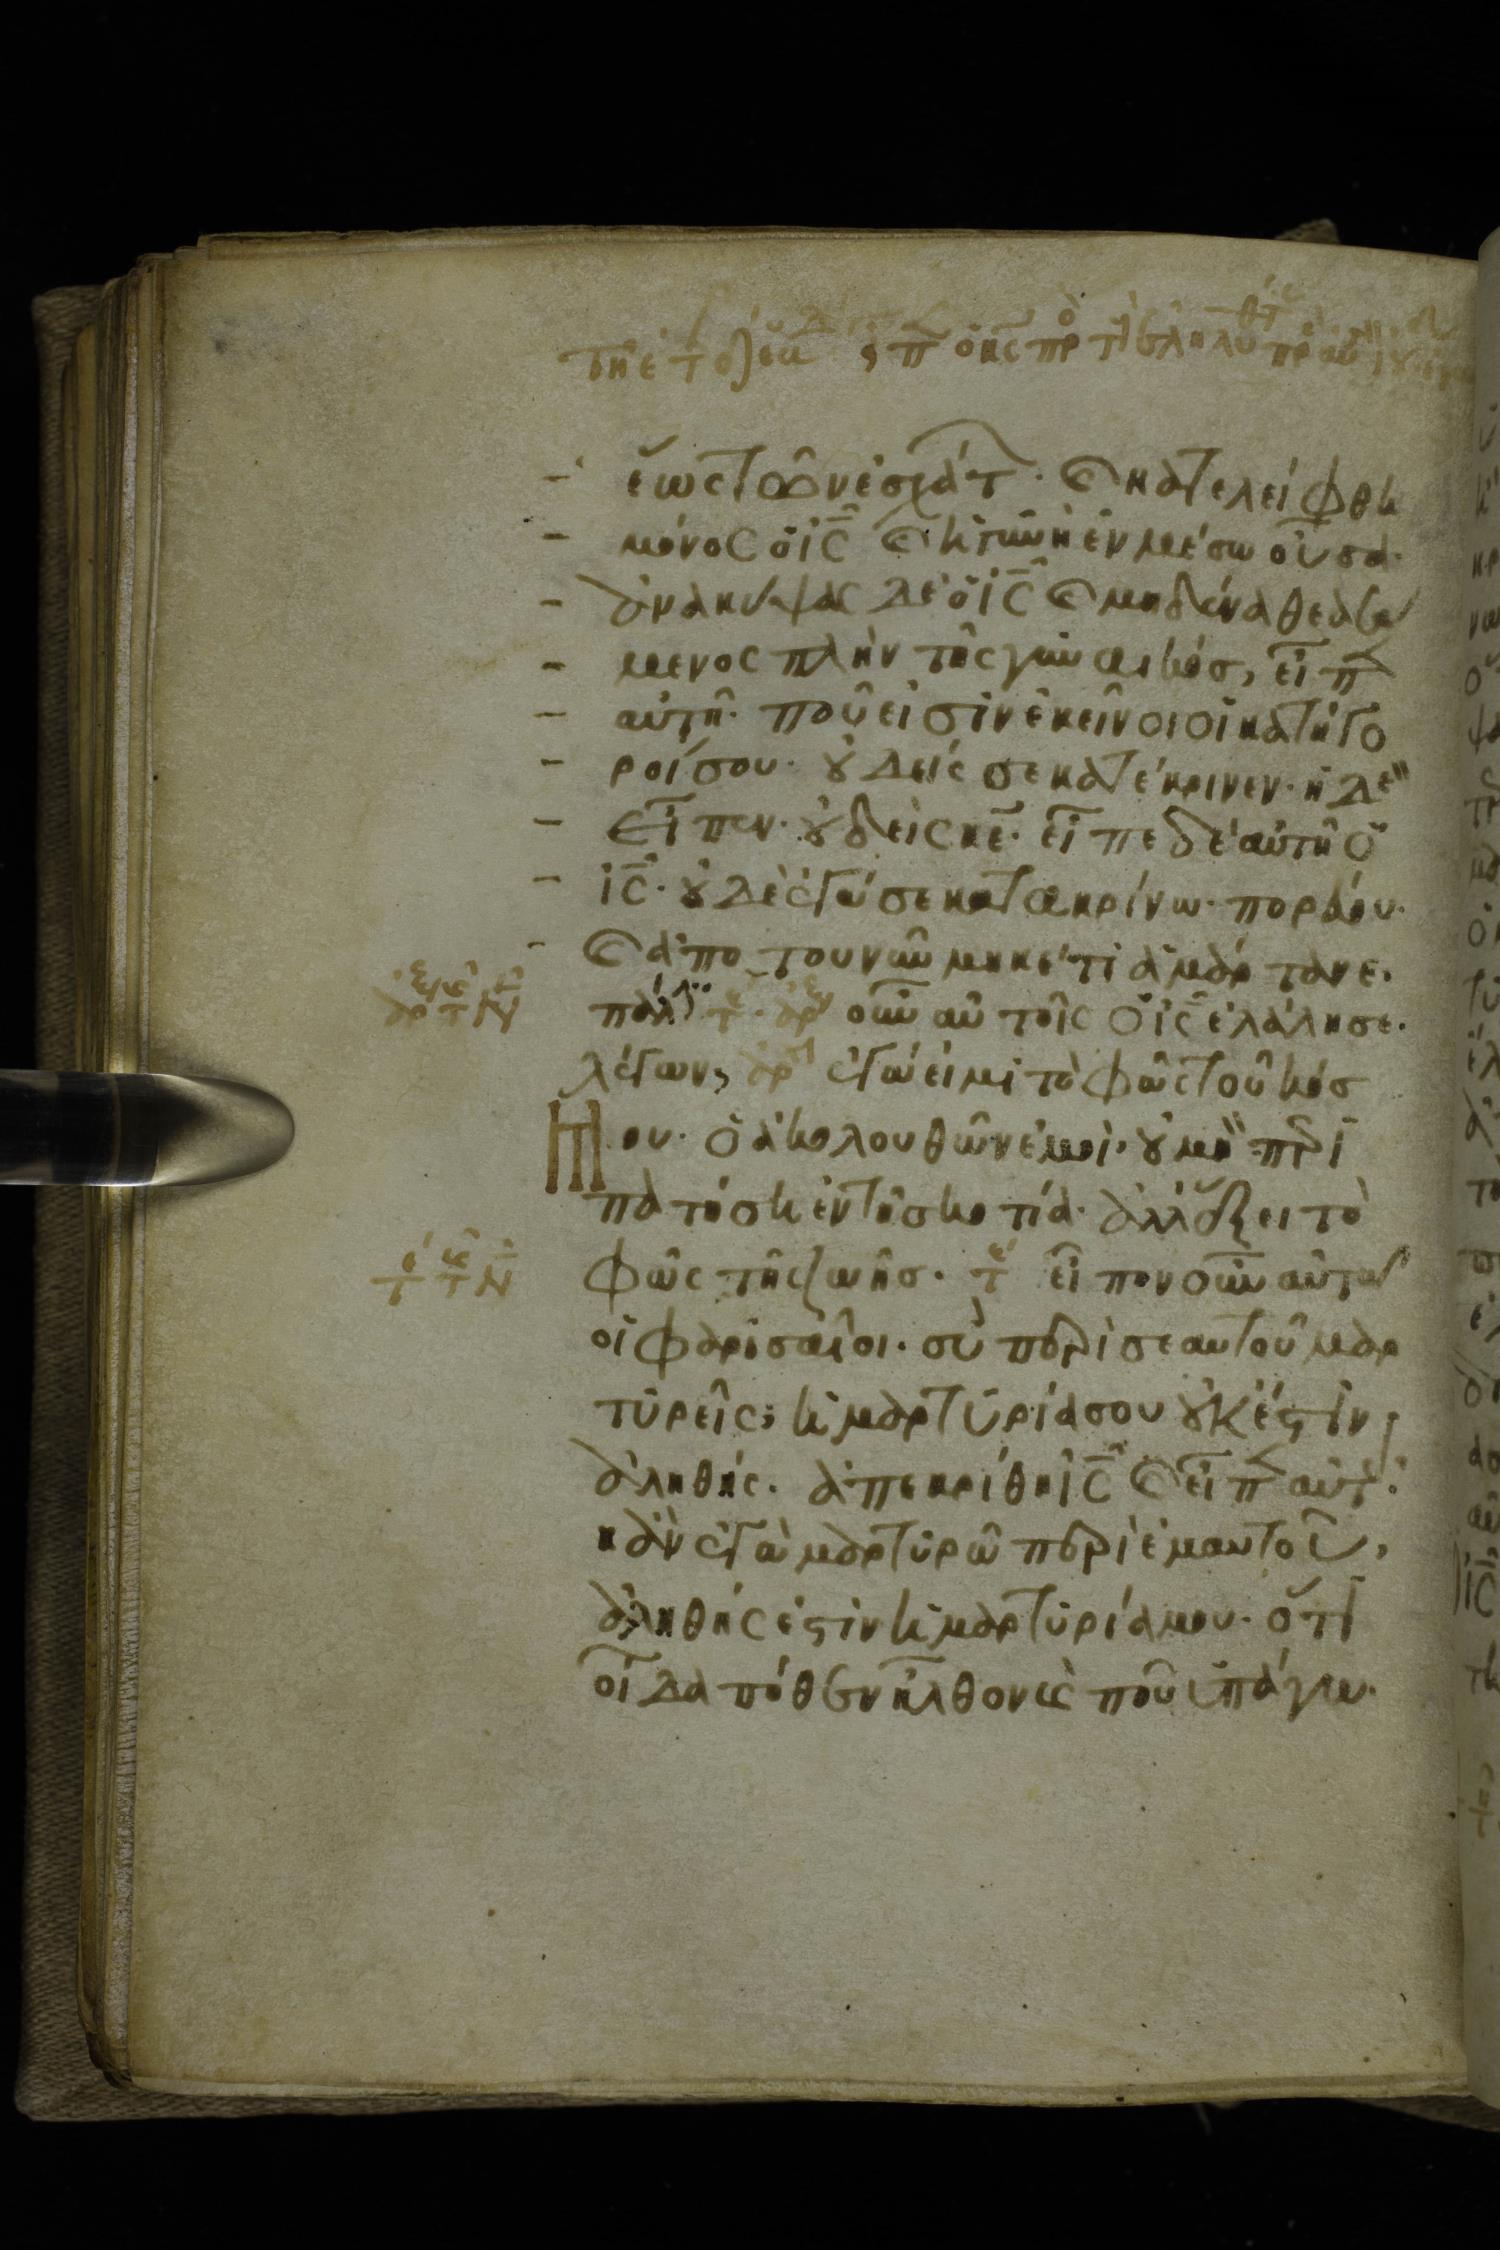 ἕως τῶν ἐσχάτ · Ϗ κατελείφθη
μόνος ὁ ις̅ Ϗ ἡ γυνὴ ἐν μέσω οὖσα·
ἀνακύψας δὲ ὁ ις̅ Ϗ μηδένα θεασά
μενος πλὴν τῆς γυναικός, εἶπ
αὐτῆ· ποῦ εἰσὶν ἐκεῖνοι οἱ κατήγο
ροί σου· ȣδείς σε κατέκρινεν· ἡ δὲ
εἶπεν· ȣδεὶς κε̅· εἶπε δὲ αὐτῆ ὁ
ις̅· ȣδὲ ἐγώ σε κατακρίνω· πορεύου·
Ϗ ἀπο του νῦν μηκέτι ἁμάρτανε·
πάλ οὖν αὐτοῖς ὁ ις̅ ἐλάλησε·
λέγων, ἐγώ εἰμι τὸ φῶς τοῦ κόσ
μου· ὁ ἀκολουθῶν ἐμοὶ· ȣ μὴ πρι
πατήση ἐν τῆ σκοτία· ἀλλ' ἕξει τὸ
φῶς τῆς ζωῆς· εἶπον οὖν αὐτῶ
οἱ φαρισαῖοι· σὺ περὶ σεαυτοῦ μαρ
τυρεῖς; ἡ μαρτυρία σου ȣκ ἔστιν
ἀληθής· ἀπεκρίθη ις̅ Ϗ εἶπ αὐτ·
κἀν ἐγὼ μαρτυρῶ περὶ ἐμαυτοῦ,
ἀληθής ἐστιν ἡ μαρτυρία μου· ὅτι
οἶδα πόθεν ἦλθον Ϗ ποῦ ὑπάγω·